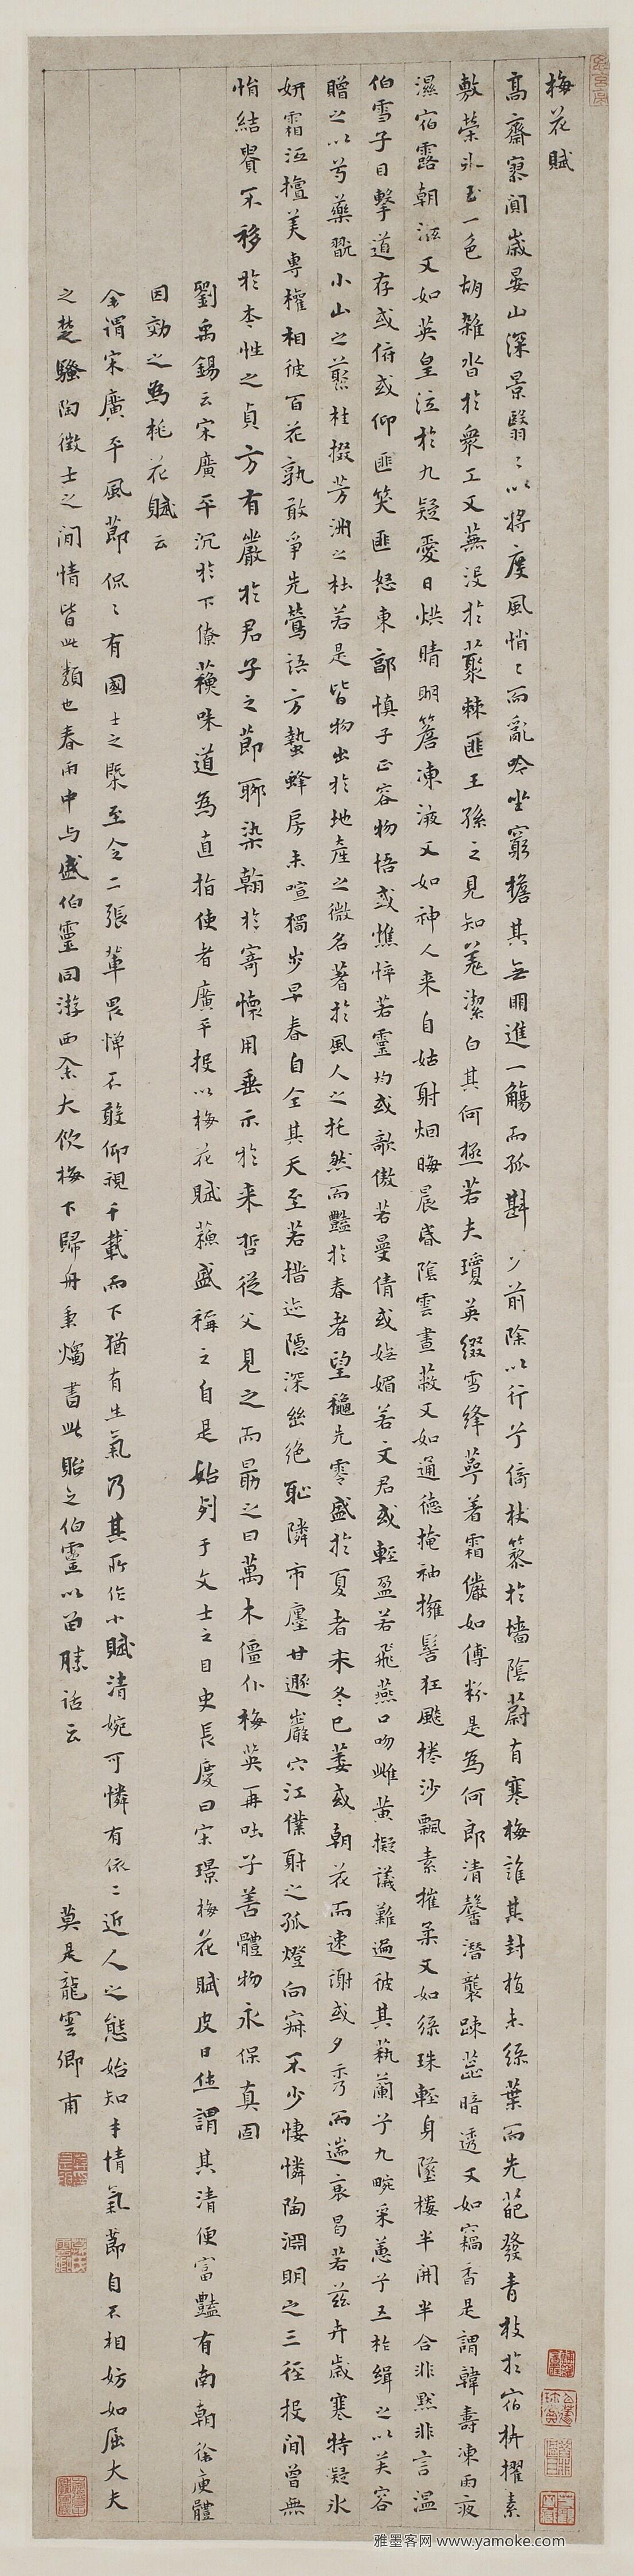 梅花賦
高齋寥閴歲晏山深景翳〻以將度風悄〻而亂吟坐窮檐其無朋進一觴而孤斟步前除以彳亍倚杖藜於墻陰蔚有寒梅誰其封植未綠葉而先葩發青枝於宿枿擢秀
敷榮氷玉一色胡雜沓於衆工又蕪没於藂棘匪王孫之見知羌潔白其何極若夫瓊英綴雪絳萼着霜儼如傅粉是為何郎清馨潛襲疎蕊暗透又如竊香是謂韓壽凍雨夜
濕宿露朝泫又如英皇泣於九疑愛日烘晴明簷凍液又如神人来自姑射烟晦晨昏陰雲晝蔽又如通德掩袖擁髻狂飈捲沙飄素摧柔又如綠珠輕身墜樓半開半合非默非言溫
伯雪子目擊道存或俯或仰匪笑匪怒東郭慎子正容物悟或憔悴若靈均或歌傲若曼倩或嫵媚若文君或輕盈若飛燕口吻雌黃擬議難遍彼其蓺蘭兮九畹采蕙兮五柞緝之以芙容
贈之以芍藥翫小山之叢桂掇芳洲之杜若是皆物出於地產之微名著於風人之托然而豔於春者望穐先零盛於夏者未冬已萎或朝花而速謝或夕秀而遄衰曷若兹卉歲寒特凝氷
妍霜沍擅美專權相彼百花孰敢爭先鶯語方蟄蜂房未喧獨步早春自全其天至若措迹隱深幽絶恥隣市廛甘遯巖穴江僕射之孤燈向寂不少悽憐陶淵明之三徑投閒曾無
悁結貴不移於本性之貞方有儼於君子之節聊染翰於寄懷用垂示於来哲從父見之而勗之曰萬木僵仆梅英再吐子善體物永保真固
劉禹錫云宋廣平沉於下僚蘓味道為直指使者廣平投以梅花賦蘓盛稱之自是始列于文士之目史長慶曰宋璟梅花賦皮日休謂其清便富豔有南朝徐庾體
因効之為桃花賦云
余謂宋廣平風節侃〻有國士之槩至令二張輩畏憚不敢仰視千載而下猶有生氣乃其所作小賦清婉可憐有依〻近人之態始知才情氣節自不相妨如屈大夫
之楚騷陶徵士之閒情皆此類也春雨中与盛伯靈同游西余大飲梅下歸舟秉燭書此貽之伯靈以留勝話云 莫是龍雲卿甫
雅墨客网 www.yamoke.com